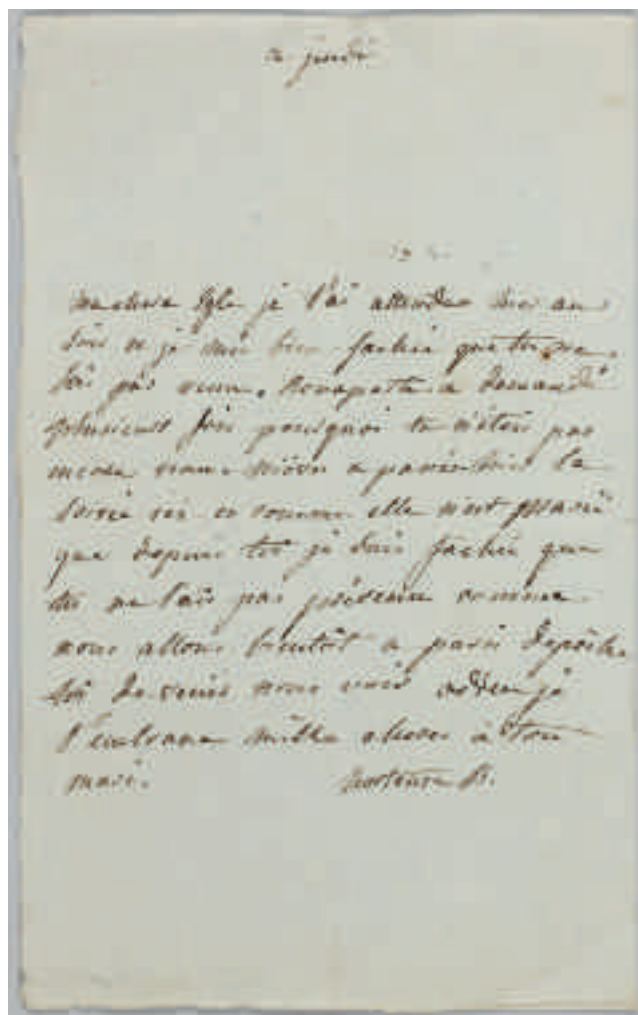 ce jeudi
ma chere Eglé je t'ai attendue hier au
soir et je suis bien fachée que tu ne
sois pas venue. Bonaparte a demandé
plusieurs fois pourquoi tu n'étois pas
venue a passé hier la
soirée ici et comme elle n'est mariée
que depuis toi je suis fachée que
tu ne l'ais pas prévenue comme
nous allons bientôt a paris dépêche
toi de venir nous voir adieu je
t'embrasse mille choses à ton
mari. hortense B.